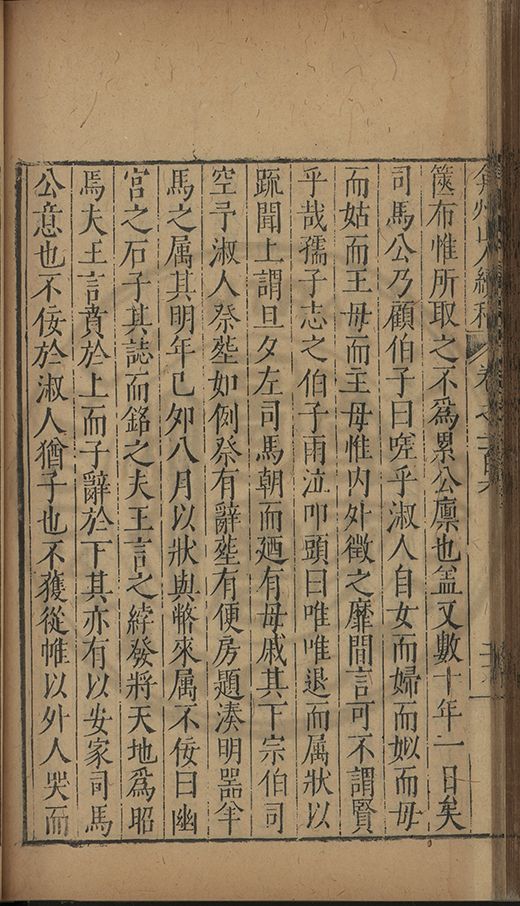 弇州山人續稿 卷之一百
篋布惟所取之不爲累公廪也盖又數十年一日矣
司馬公乃顧伯子曰嗟乎淑人自女而婦而姒而母
而姑而王母而主母惟内外徵之靡間言可不謂賢
乎哉孺子志之伯子雨泣叩頭曰唯唯退而属狀以
䟽聞上謂旦夕左司馬朝而廼有母戚其下宗伯司
空予淑人祭塟如例祭有辭塟有便房題湊明器半
馬之属其明年己夘八月以狀與幣來属不佞曰幽
宫之石子其誌而銘之夫王言之綍發將天地爲昭
焉夫王言賁於上而子辭於下其亦有以安家司馬
公意也不佞於淑人猶子也不獲從帷以外人哭而